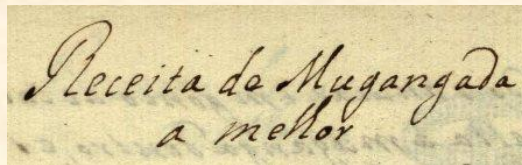 Receita de Mugangada
a mellor